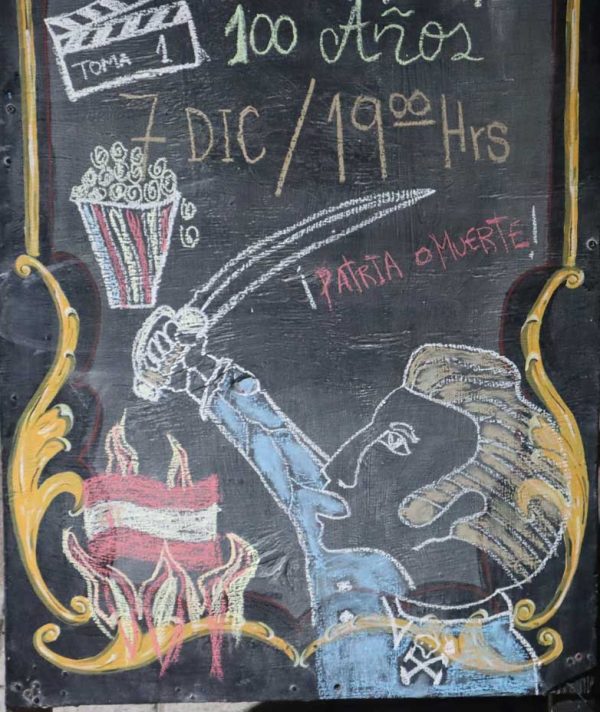 TOMA 1
100 Años
7 DIC / 19⁰⁰ Hrs
¡PATRIA O MUERTE!